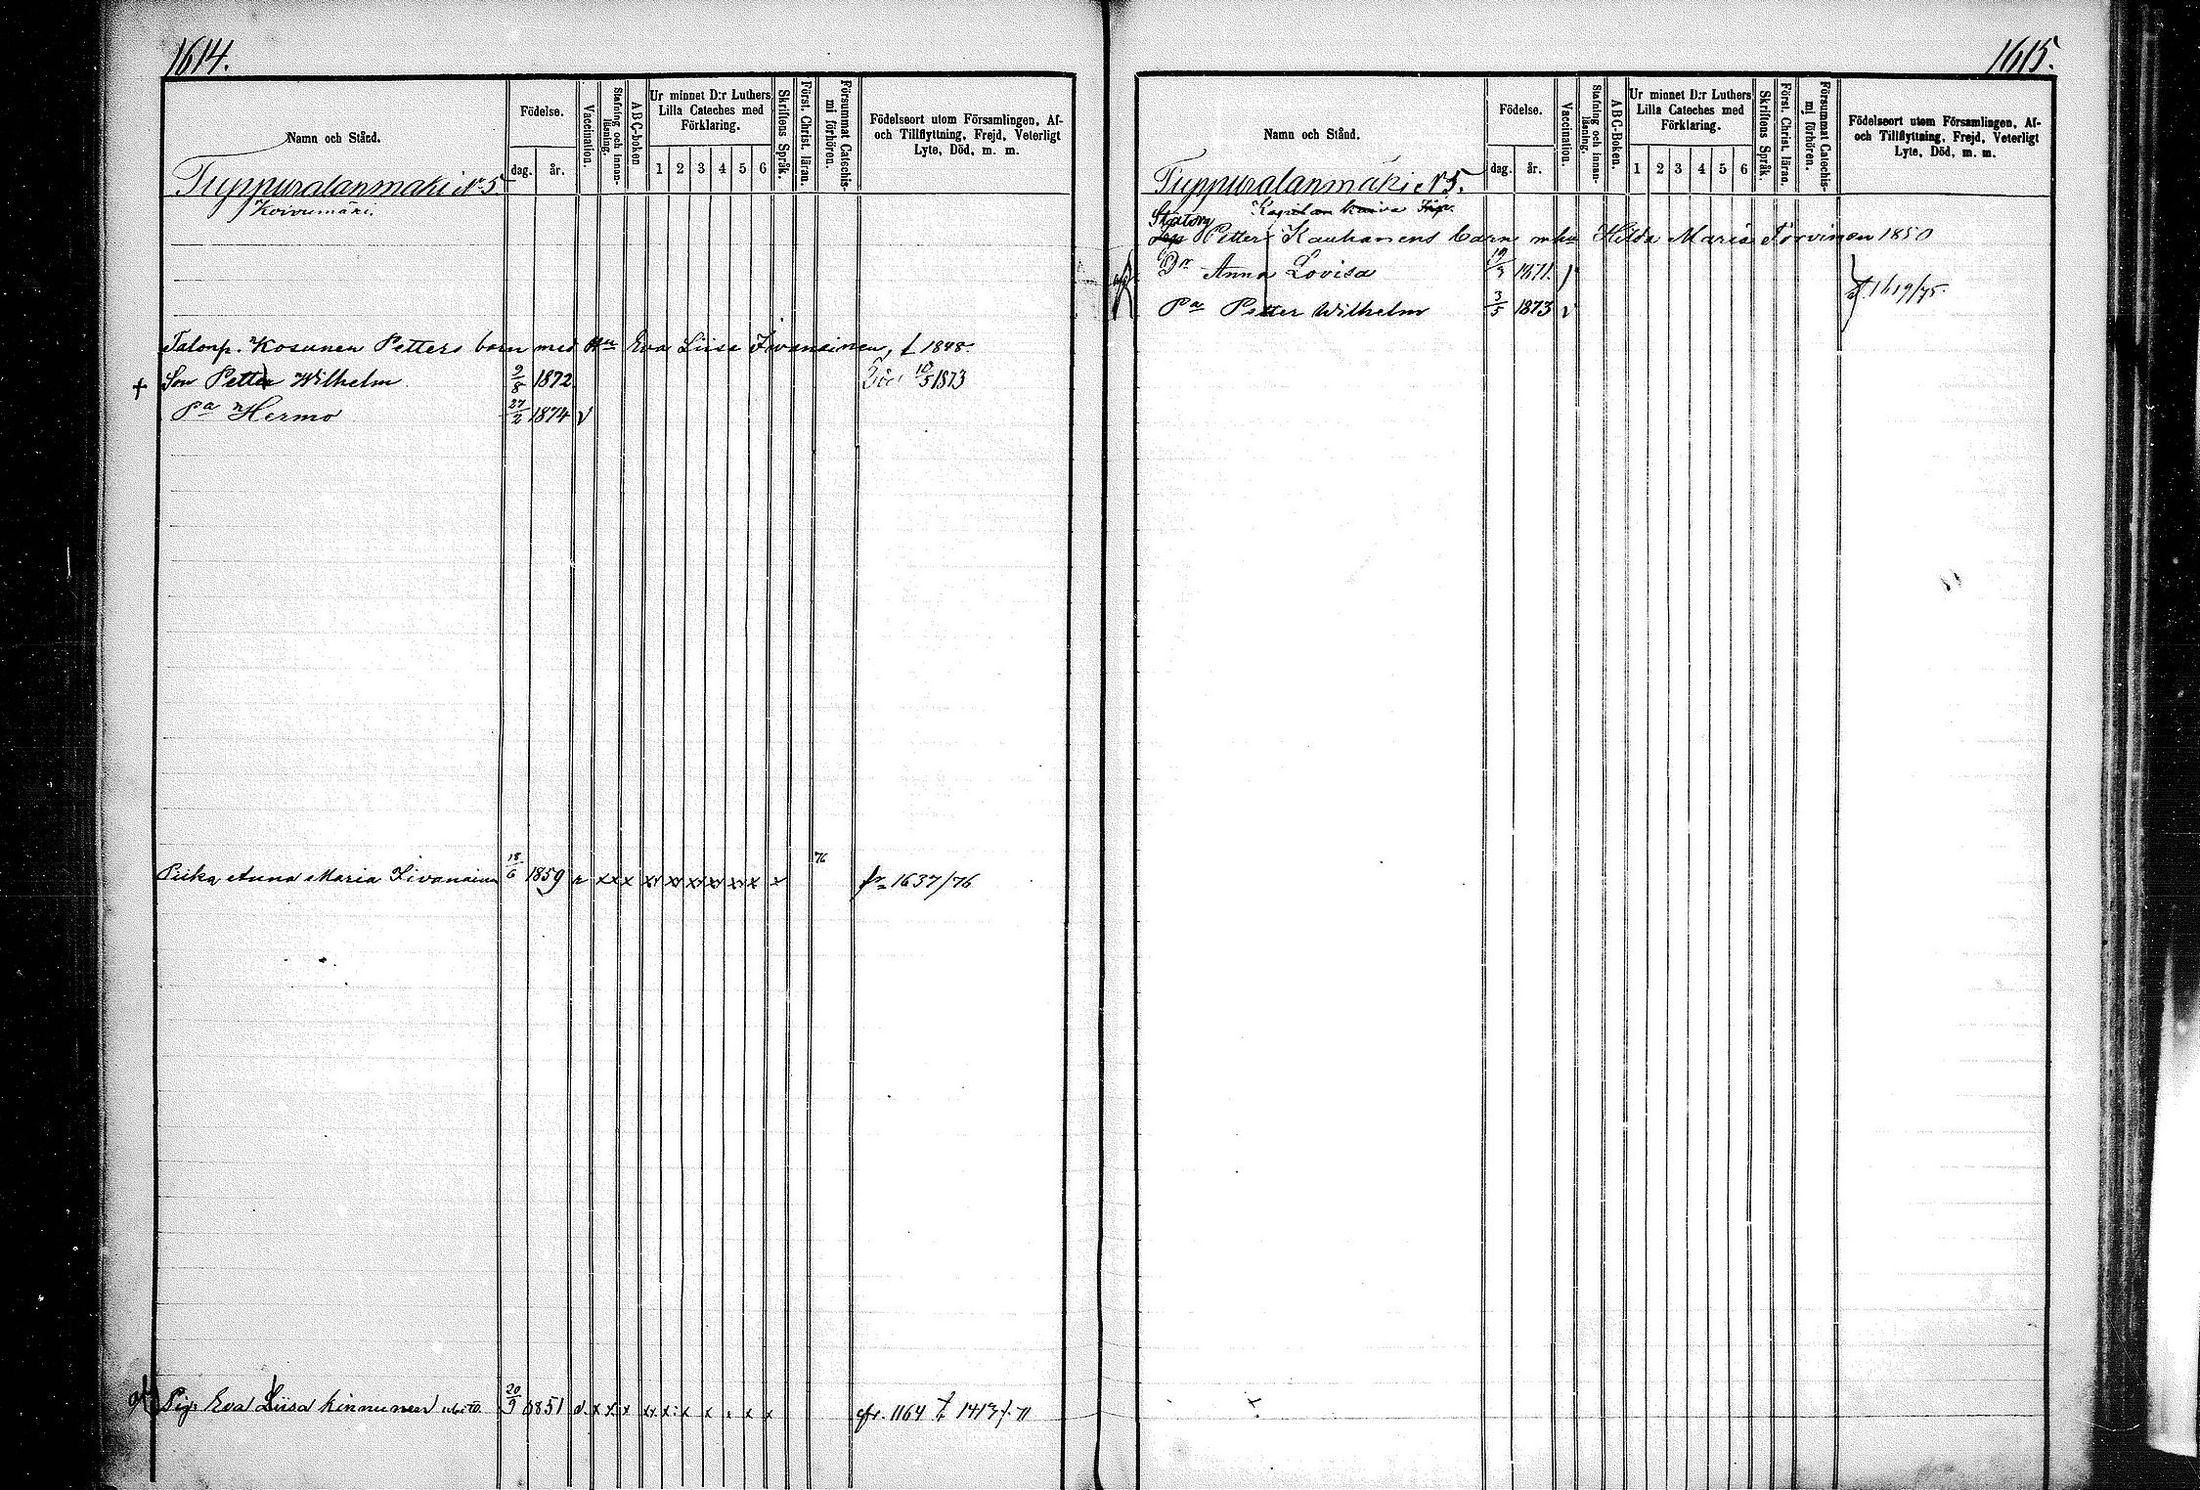 1614.
Namn och Stånd.
Födelse.
dag.
år.
Vaccination.
Stafning och innan-
läsning.
ABC-boken
Ur minnet D:r Luthers
Lilla Cateches med
Förklaring.
1 2 3 4 5 6
Skriftens Språk.
Först. Christ. läran.
Försummat Catechis-
mi förhören.
Födelseort utom Församlingen, Af-
och Tillflyttning, Frejd, Veterligt
Lyte, Död, m. m.
Tuppuralanmäki N:5
Koivumäki.
Talonp. Kosunen Petters barn med Hu Eva Liisa Iivanainen, f. 1848.
+ Son Petter Wilhelm 9/8 1872 Död 10/5 1873
Pa Hermo 27/2 1874 v
Piika Anna Maria Iivanainen 18/6 1859 v x x x x x x x x x x 76 fr. 1637/76
Pig. Eva Liisa Kinnunen 20/9 1851 v. x x x x x x x x x x fr. 1164 t. 1413/77
1615.
Namn och Stånd.
Födelse.
dag.
år.
Vaccination.
Stafning och innan-
läsning.
ABC-Boken.
Ur minnet D:r Luthers
Lilla Cateches med
Förklaring.
1 2 3 4 5 6
Skriftens Språk.
Först. Christ. läran.
Försummat Catechis-
mi förhören.
Födelseort utom Församlingen, Af-
och Tillflyttning, Frejd, Veterligt
Lyte, Död, m. m.
Tuppuralanmäki N:5.
Petter Kauhanens barn mhu Hilda Maria Torvinen 1850
Dr Anna Lovisa 19/3 1871. v
Pa Petter Wilhelm 3/5 1873 v
t. 1619/75.